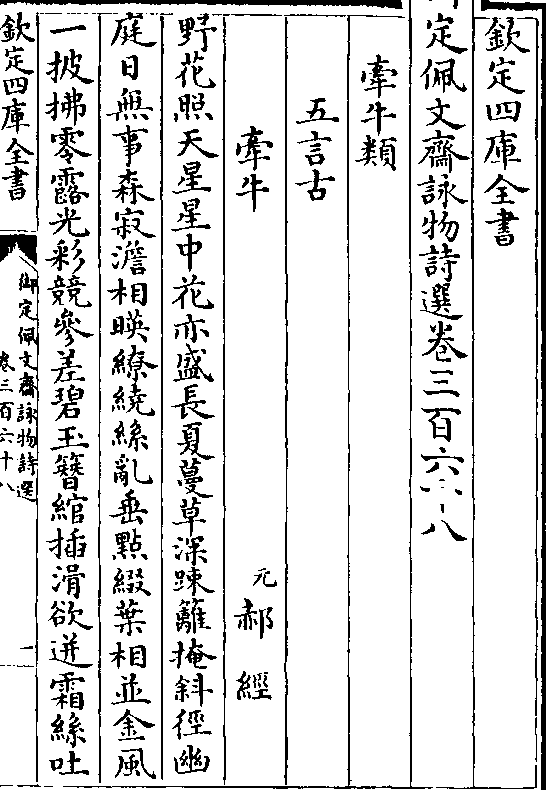 欽定四庫全書
定佩文齋詠物詩選卷三百六十八
牽牛類
五言古
牽牛
元 郝經
野花照天星星中花亦盛長夏蔓草深踈籬掩斜徑幽
庭日無事森寂澹相暎繚繞絲亂垂點綴葉相並金風
一披拂零露光彩競參差碧玉簪綰插滑欲迸霜絲吐
欽定四庫全書
御定佩文齋詠物詩選
卷三百六十八
一